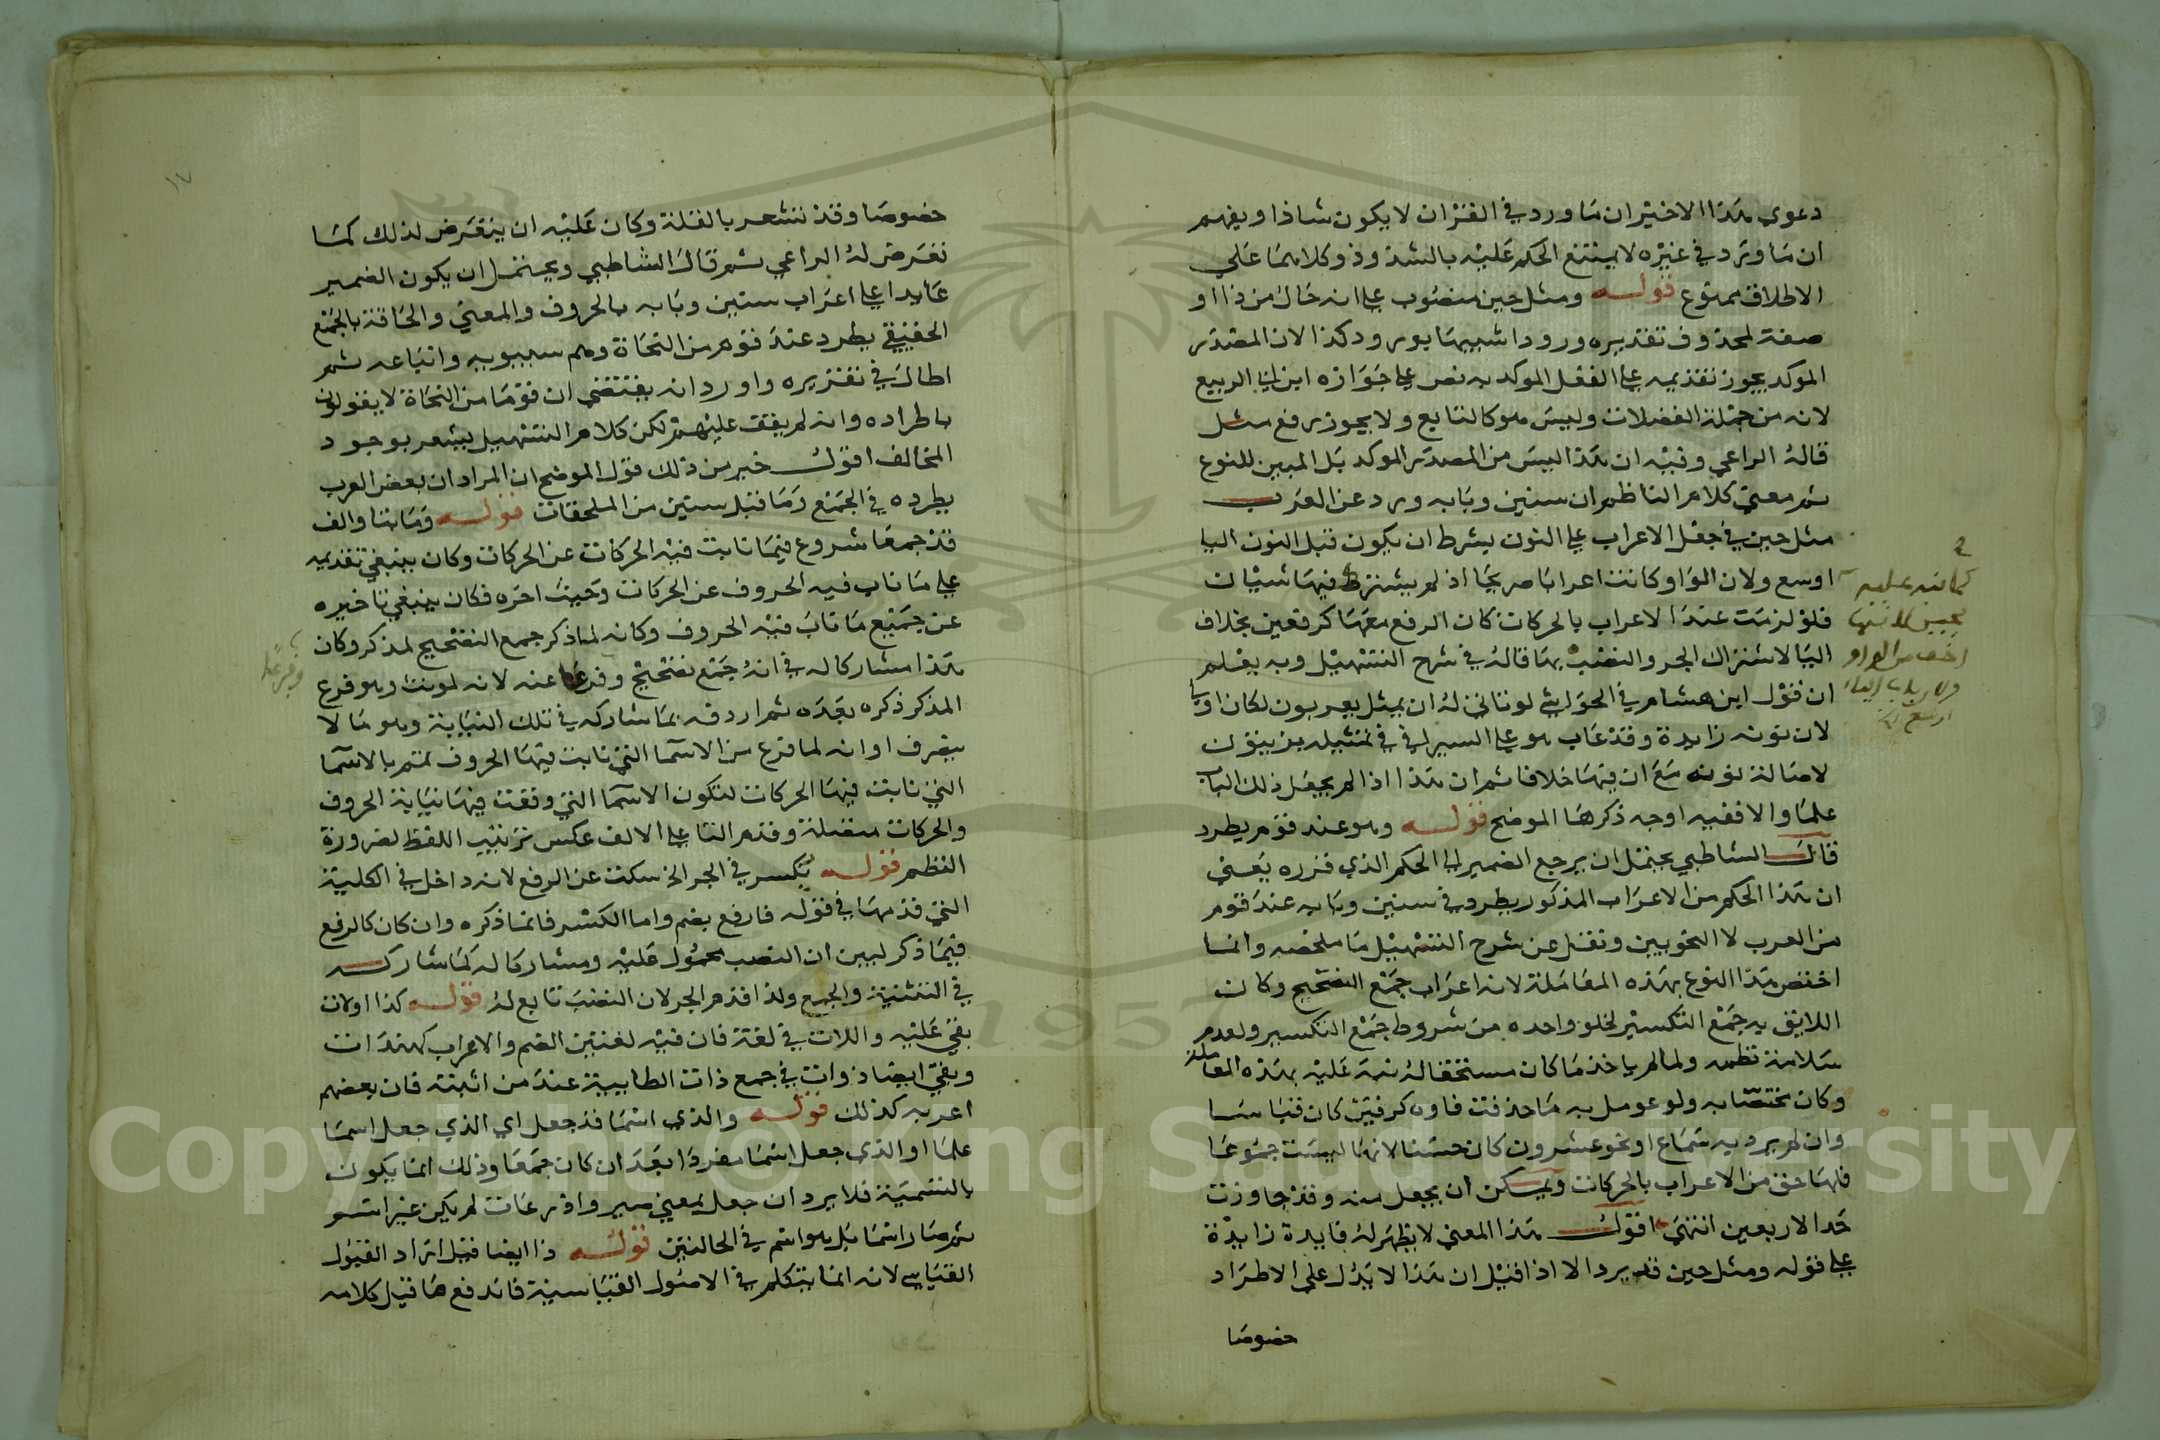 دعوي هذا الاخير ان ما ورد في القران لا يكون شاذا ويفهم
ان ما ورد في غيره لا يمتنع الحكم عليه بالشذوذ وكلاهما علي
الاطلاق ممنوع قوله ومثل حين منصوب علي انه حال من ذا او
صفة لمحذوف تقديره ورودا شبيها بورود كذا لان المصدر
الموكد يجوز تقديمه علي الفعل الموكد به نص علي جوازه ابن ابي الربيع
لانه من جملة الفضلات وليس هو كالتابع ولا يجوز رفع مثل
قاله الراعي وفيه ان هذا ليس من المصدر الموكد بل المبين للنوع
ثم معني كلام الناظم ان سنين وبابه ورد عن العرب
مثل حين في جعل الاعراب علي النون بشرط ان يكون قبل النون اليا
اوسع ولان الواو كانت اعرابا صريحا اذ لم يشترط فيها شيئان
فلو لزمت عند الاعراب بالحركات كان الرفع معها كرفعين بخلاف
اليا لاشتراك الجر والنصب بها قاله في شرح التسهيل وبه يعلم
ان قول ابن هشام في الحواشي لو تاتي له ان يمثل بعربون لكان اولي
لان نونه زايدة وقد عاب هو علي السيرافي في تمثيله بزيتون
لاصالة نونه مع ان فيها خلافا ثم ان هذا اذا لم يجعل ذلك الباب
علما والا ففيه اوجه ذكرها الموضح قوله وهو عند قوم يطرد
قال الشاطبي يحتمل ان يرجع الضمير الي الحكم الذي قرره يعني
ان هذا الحكم من الاعراب المذكور يطرد في سنين وبابه عند قوم
من العرب لا النحويين ونقل عن شرح التسهيل ما ملخصه وانما
اختص هذا النوع بهذه المعاملة لانه اعراب جمع التصحيح وكان
اللايق به جمع التكسير لخلو واحده من شروط جمع التكسير ولعدم
سلامة نظمه ولما لم ياخذ ما كان مستحقا له نبه عليه بهذه المعاملة
وكان مختصا به ولو عومل به ما حذفت فاوه كرقين كان قياسا
وان لم يرد به سماع او نحو عشرون كان حسنا لانها ليست جموعا
فلها حق من الاعراب بالحركات ويمكن ان يجعل منه وقد جاوزت
حد الاربعين انتهي اقول هذا المعني لا يظهر له فايدة زايدة
علي قوله ومثل حين قد يرد الا اذا قيل ان هذا لا يدل علي الاطراد
خصوصا
خصوصا وقد تشعر بالقلة وكان عليه ان يتعرض لذلك كما
تعرض له الراعي ثم قال الشاطبي ويحتمل ان يكون الضمير
عايدا علي اعراب سنين وبابه بالحروف والمعني والحاقه بالجمع
الحقيقي يطرد عند قوم من النحاة وهم سيبويه واتباعه ثم
اطال في تقريره واورد انه يقتضي ان قوما من النحاة لا يقولون
باطراده وانه لم يقف عليهم لكن كلام التسهيل يشعر بوجود
المخالف اقول خير من ذلك قول الموضح ان المراد ان بعض العرب
يطرده في الجمع وما قبل سنين من الملحقات قوله وما بتا والف
قد جمعا شروع فيما نابت فيه الحركات عن الحركات وكان ينبغي تقديمه
علي ما ناب فيه الحروف عن الحركات وحيث اخره فكان ينبغي تاخيره
عن جميع ما ناب فيه الحروف وكانه لما ذكر جمع التصحيح لمذكر وكان
هذا مشاركا له في انه جمع تصحيح وفرعا عنه لانه لمونث وهو فرع
المذكر ذكره بعده ثم اردفه بما شاركه في تلك النيابة وهو ما لا
ينصرف او انه لما فرغ من الاسما التي نابت فيها الحروف تمم بالاسما
التي نابت فيها الحركات لتكون الاسما التي وقعت فيها نيابة الحروف
والحركات متصلة وقدم التا علي الالف عكس ترتيب اللفظ لضرورة
النظم قوله يكسر في الجر الخ سكت عن الرفع لانه داخل في الكلية
التي قدمها في قوله فارفع بضم واما الكسر فانما ذكره وان كان كالرفع
فيما ذكر ليبين ان النصب محمول عليه ومشاركا له كما شاركه
في التثنية والجمع ولذا قدم الجر لان النصب تابع له قوله كذا اولات
بقي عليه واللات في لغة فان فيه لغتين الضم والاعراب كهندات
وبقي ايضا ذوات في جمع ذات الطايية عند من اثبته فان بعضهم
اعربه كذلك قوله والذي اسما قد جعل اي الذي جعل اسما
علما او الذي جعل اسما مفردا بعد ان كان جمعا وذلك انما يكون
بالتسمية فلا يرد ان جعل بمعني صير واذرعات لم يكن غير اسم
ثم صار اسما بل هو اسم في الحالتين قوله ذا ايضا قبل اراد القبول
القياسي لانه انما يتكلم في الاصول القياسية فاندفع ما قيل كلامه